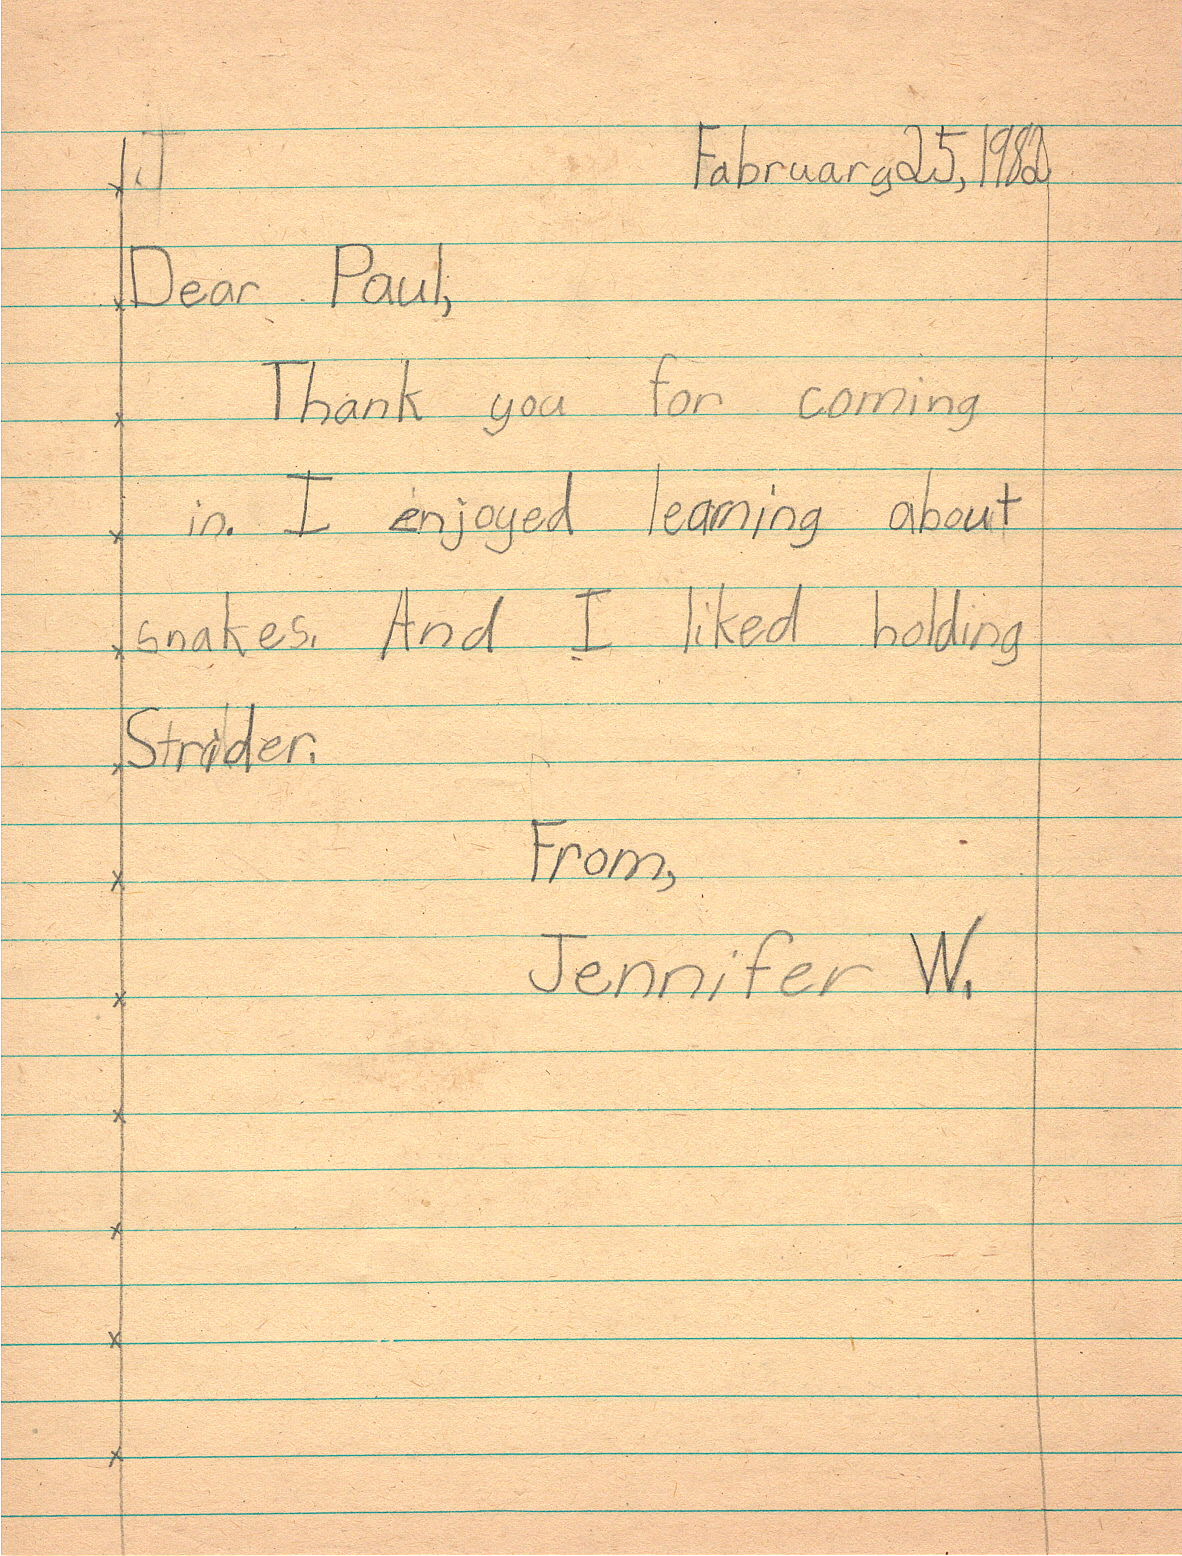 Fabruary 25, 1982
Dear Paul,
Thank you for coming
in. I enjoyed learning about
snakes. And I liked holding
Strider.
From,
Jennifer W.